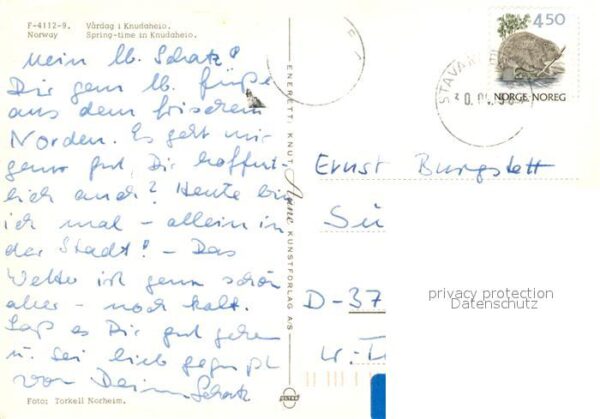 F-4112-9. Vårdag i Knudaheio.
Norway Spring-time in Knudaheio.
Mein lb. Schatz!
Dir ganz lb. Grüße
aus dem frischen
Norden. Es geht mir
ganz gut, Dir hoffent-
lich auch? Heute bin
ich mal - allein in
der Stadt! - Das
Wetter ist ganz schön
aber - noch kalt.
Laß es Dir gut gehen
u. sei lieb gegrüßt
von Deinem Schatz
Foto: Torkell Norheim.
ENERETT: KNUT Aune KUNSTFORLAG A/S
4.50
NORGE NOREG
STAVAN
Ernst Burgstett
Sü
D-37
W-
privacy protection
Datenschutz